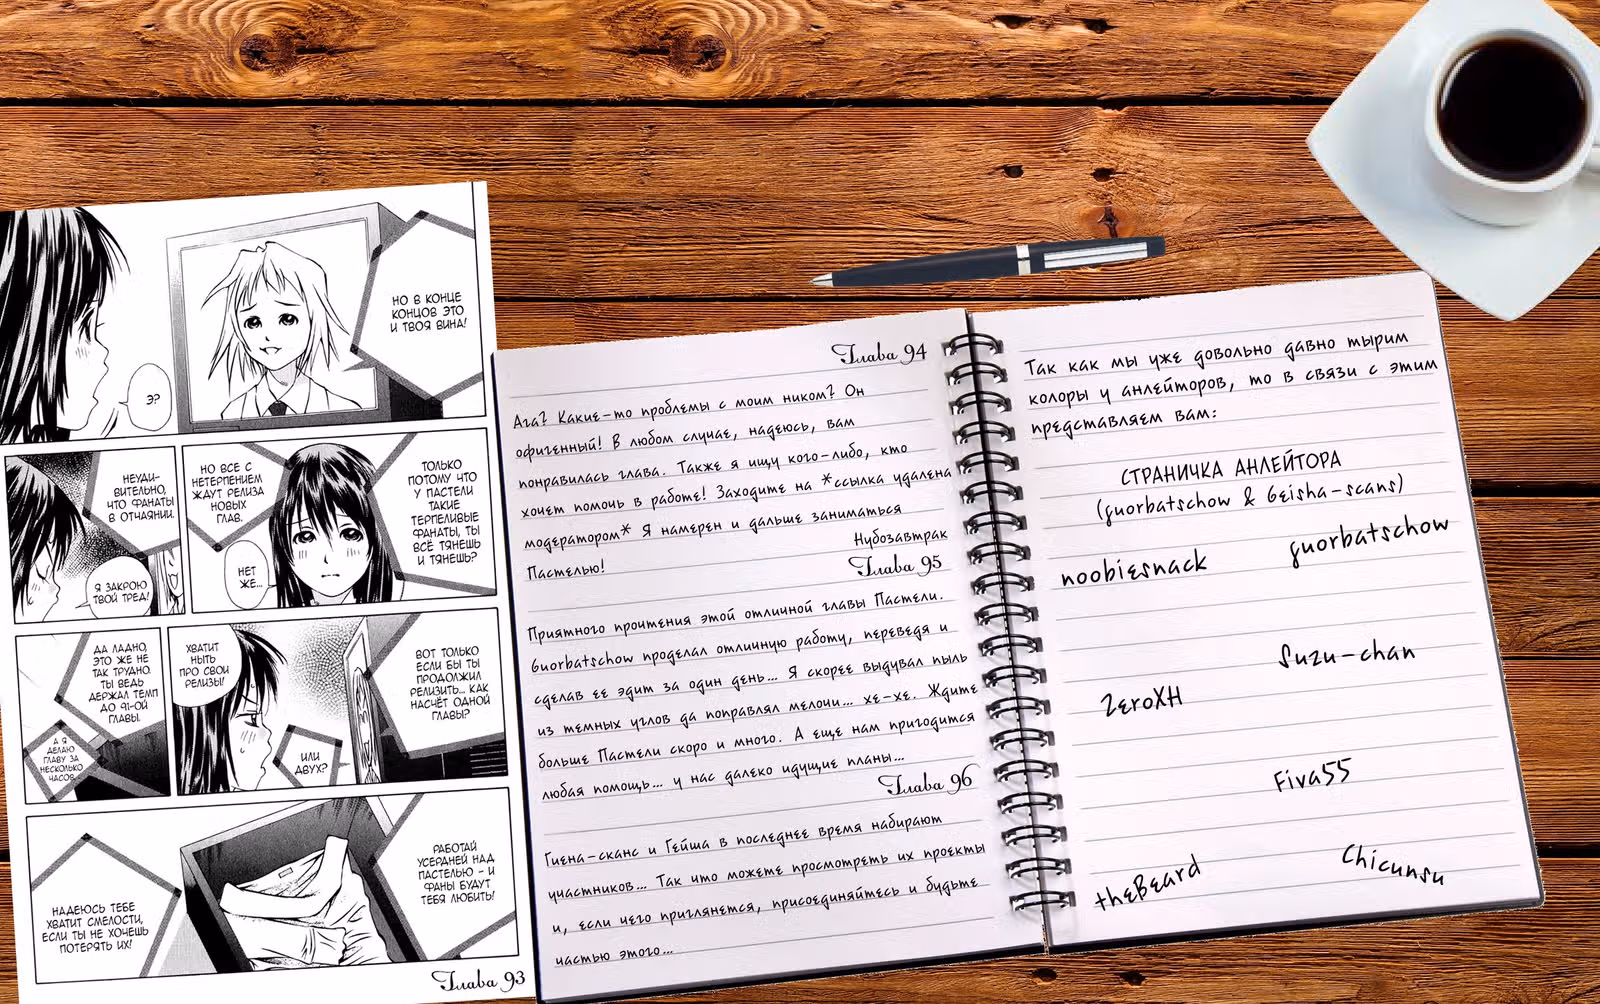 НО В КОНЦЕ
КОНЦОВ ЭТО
И ТВОЯ ВИНА!
Э?
НЕУДИ-
ВИТЕЛЬНО,
ЧТО ФАНАТЫ
В ОТЧАЯНИИ.
Я ЗАКРОЮ
ТВОЙ ТРЕД!
НО ВСЕ С
НЕТЕРПЕНИЕМ
ЖДУТ РЕЛИЗА
НОВЫХ
ГЛАВ.
НЕТ
ЖЕ...
ТОЛЬКО
ПОТОМУ ЧТО
У ПАСТЕЛИ
ТАКИЕ
ТЕРПЕЛИВЫЕ
ФАНАТЫ, ТЫ
ВСЁ ТЯНЕШЬ
И ТЯНЕШЬ?
ДА ЛАДНО,
ЭТО ЖЕ НЕ
ТАК ТРУДНО.
ТЫ ВЕДЬ
ДЕРЖАЛ ТЕМП
ДО 91-ОЙ
ГЛАВЫ.
А Я
ДЕЛАЮ
ГЛАВУ ЗА
НЕСКОЛЬКО
ЧАСОВ.
ХВАТИТ
НЫТЬ
ПРО СВОИ
РЕЛИЗЫ!
ИЛИ
ДВУХ?
ВОТ ТОЛЬКО
ЕСЛИ БЫ ТЫ
ПРОДОЛЖИЛ
РЕЛИЗИТЬ... КАК
НАСЧЁТ ОДНОЙ
ГЛАВЫ?
НАДЕЮСЬ ТЕБЕ
ХВАТИТ СМЕЛОСТИ,
ЕСЛИ ТЫ НЕ ХОЧЕШЬ
ПОТЕРЯТЬ ИХ!
РАБОТАЙ
УСЕРДНЕЙ НАД
ПАСТЕЛЬЮ - И
ФАНЫ БУДУТ
ТЕБЯ ЛЮБИТЬ!
Глава 93
Глава 94
Ага? Какие-то проблемы с моим ником? Он
офигенный! В любом случае, надеюсь, вам
понравилась глава. Также я ищу кого-либо, кто
хочет помочь в работе! Заходите на *ссылка удалена
модератором* Я намерен и дальше заниматься
Пастелью!
Нубозавтрак
Глава 95
Приятного прочтения этой отличной главы Пастели.
Guorbatschow проделал отличную работу, переведя и
сделав ее эдит за один день... Я скорее выдувал пыль
из темных углов да поправлял мелочи... хе-хе. Ждите
больше Пастели скоро и много. А еще нам пригодится
любая помощь... у нас далеко идущие планы...
Глава 96
Гиена-сканс и Гейша в последнее время набирают
участников... Так что можете просмотреть их проекты
и, если чего приглянется, присоединяйтесь и будьте
частью этого...
Так как мы уже довольно давно тырим
колоры у анлейторов, то в связи с этим
представляем вам:
СТРАНИЧКА АНЛЕЙТОРА
(guorbatschow & Geisha-scans)
noobiesnack
guorbatschow
Suzu-chan
ZeroXH
Fiva55
theBeard
Chicunsu